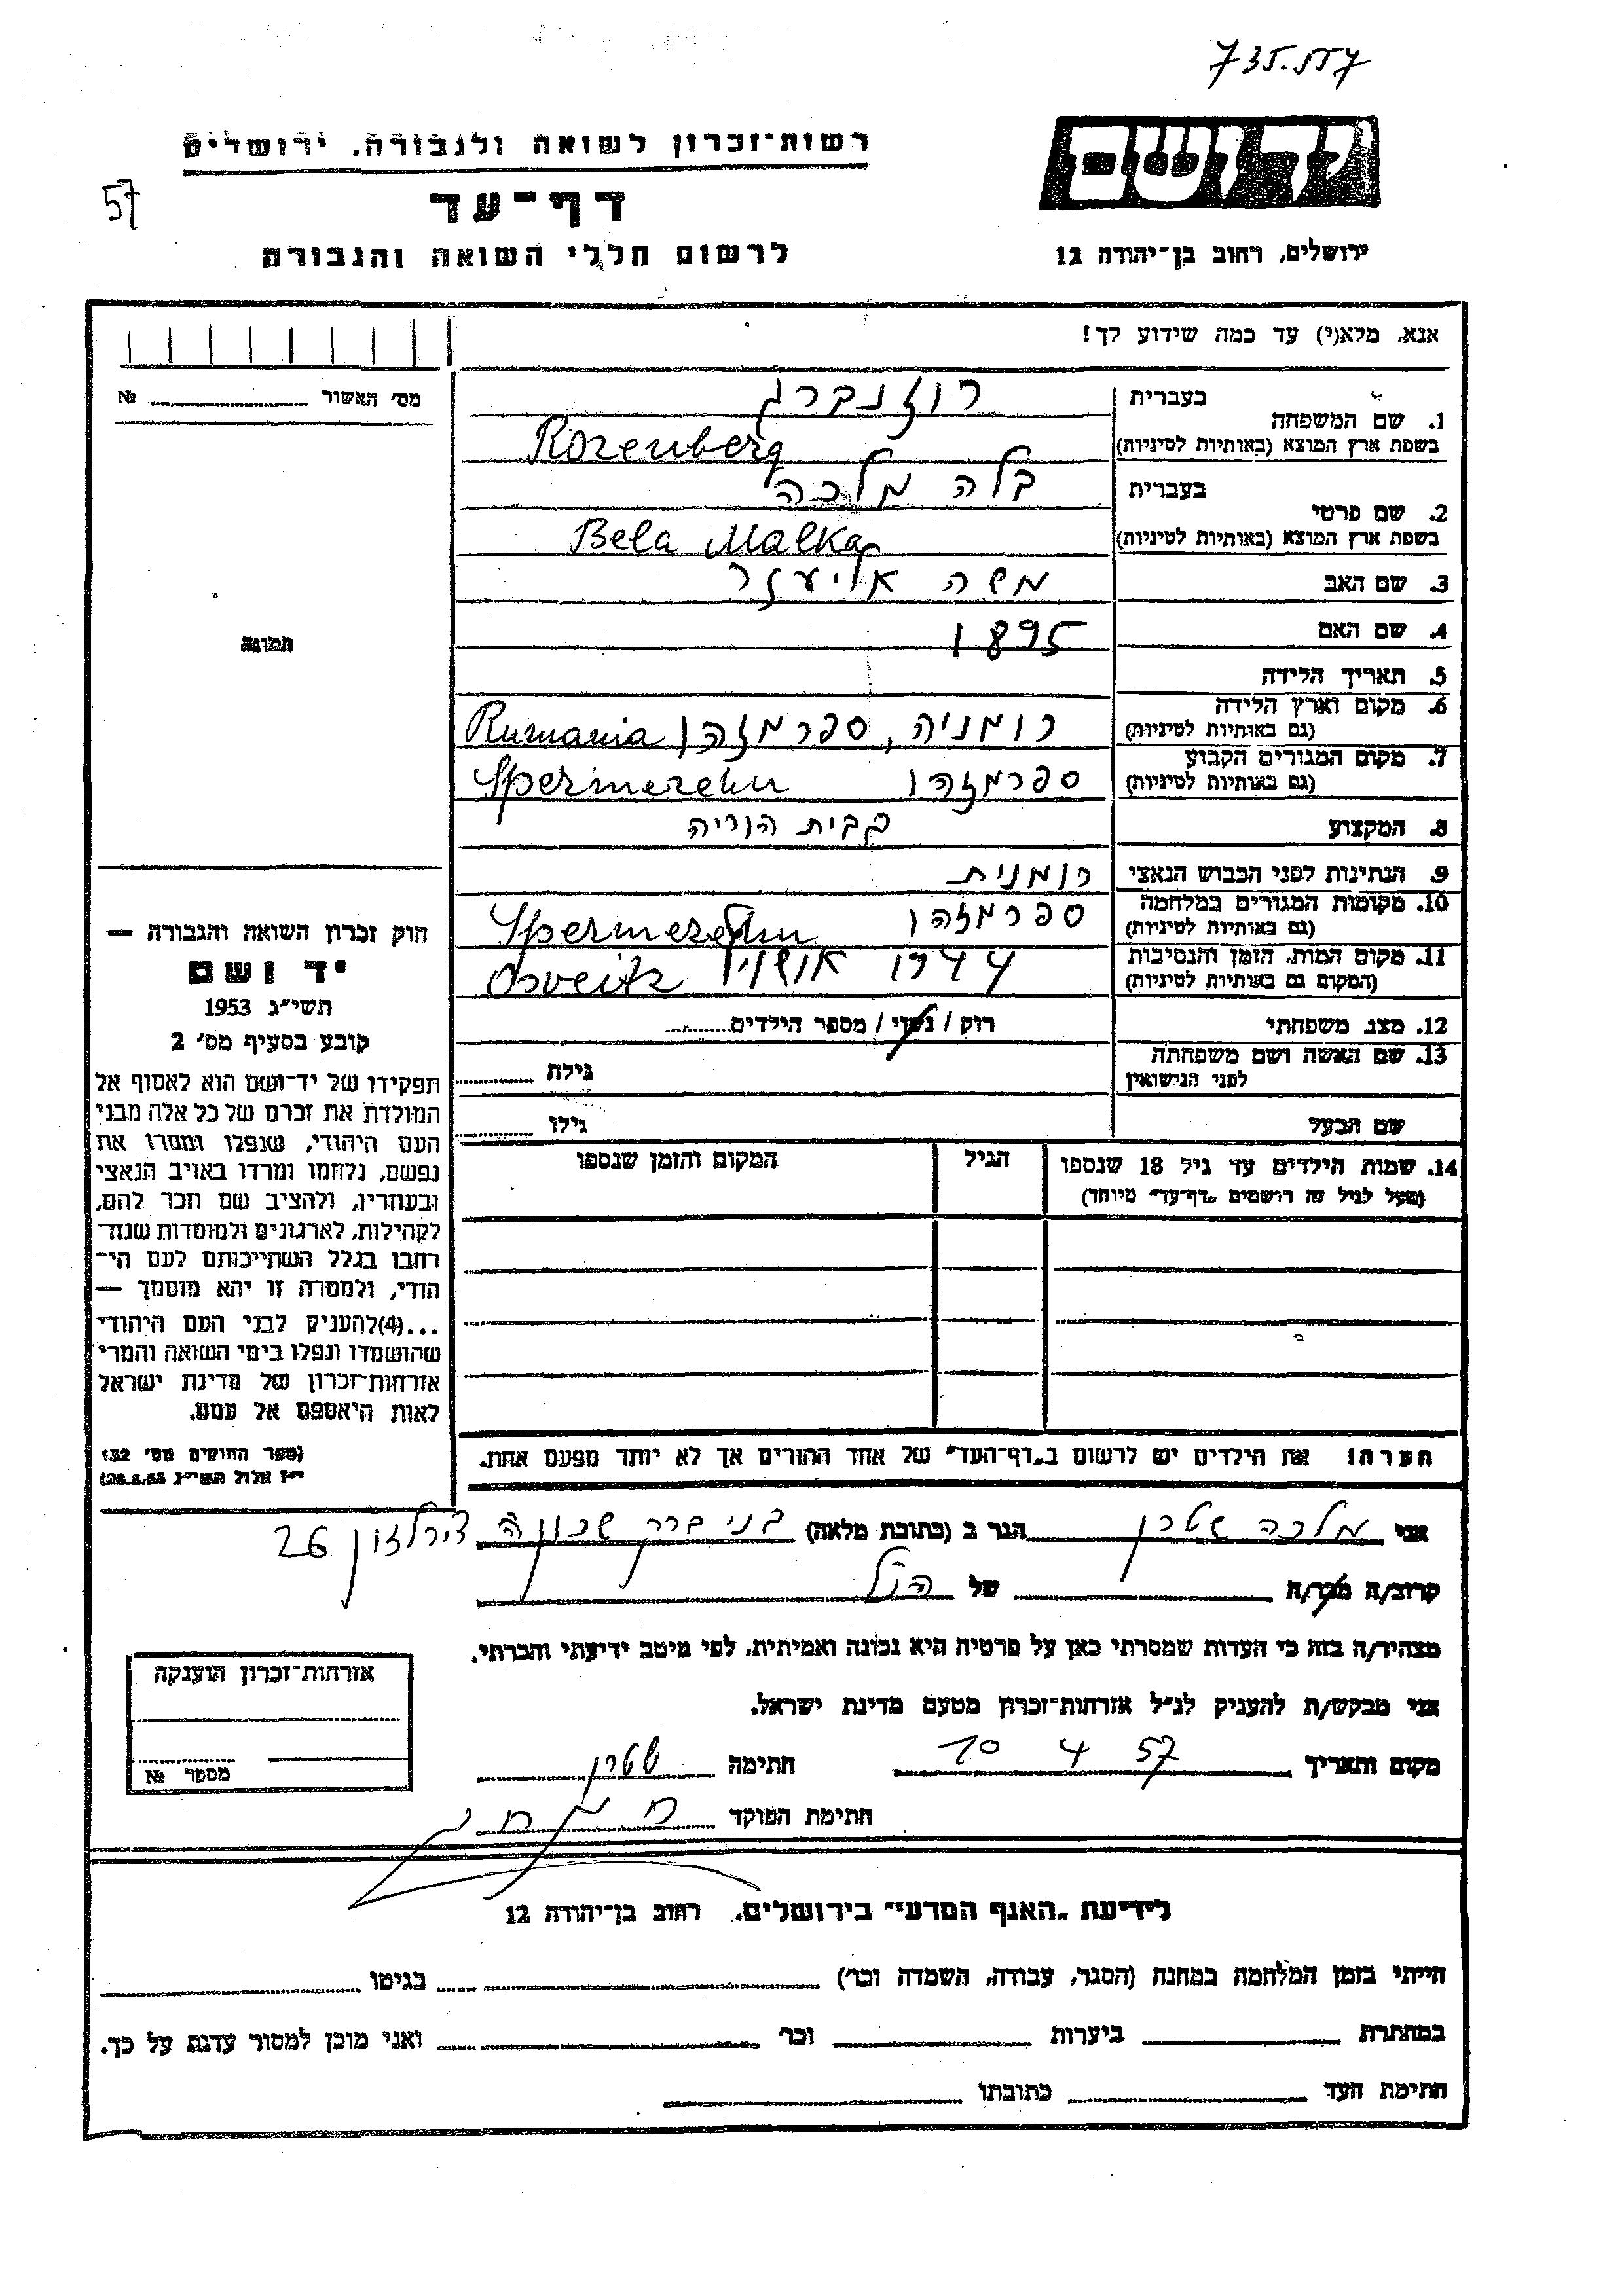 735.557
יד ושם
רשות־זכרון לשואה ולגבורה, ירושלים
57
דף־עד
ירושלים, רחוב בן־יהודה 12
לרשום חללי השואה והגבורה
אנא, מלא(י) עד כמה שידוע לך!
מס' האשור № 
1. שם המשפחה בעברית רוזנברג
בשפת ארץ המוצא (באותיות לטיניות) Rozenberg
2. שם פרטי בעברית בלה מלכה
בשפת ארץ המוצא (באותיות לטיניות) Bela Malka
3. שם האב משה אליעזר
4. שם האם 1895
תמונה
5. תאריך הלידה
6. מקום וארץ הלידה (גם באותיות לטיניות) רומניה, ספרמזהו Rumania
7. מקום המגורים הקבוע (גם באותיות לטיניות) ספרמזהו Spermezehu
8. המקצוע בבית הוריה
9. הנתינות לפני הכבוש הנאצי רומנית
10. מקומות המגורים במלחמה (גם באותיות לטיניות) ספרמזהו Spermezehu
11. מקום המות, הזמן והנסיבות (המקום גם באותיות לטיניות) 1944 אושויץ Osveitz
12. מצב משפחתי רוק / נשוי / מספר הילדים
13. שם האשה ושם משפחתה לפני הנישואין גילה
שם הבעל גילו
14. שמות הילדים עד גיל 18 שנספו הגיל המקום והזמן שנספו
(מעל לגיל זה רושמים "דף־עד" מיוחד)
חוק זכרון השואה והגבורה —
יד ושם
תשי"ג 1953
קובע בסעיף מס' 2
תפקידו של יד־ושם הוא לאסוף אל
המולדת את זכרם של כל אלה מבני
העם היהודי, שנפלו ומסרו את
נפשם, נלחמו ומרדו באויב הנאצי
ובעוזריו, ולהציב שם וזכר להם,
לקהילות, לארגונים ולמוסדות שנח־
רבו בגלל השתייכותם לעם הי־
הודי, ולמטרה זו יהא מוסמך —
...(4)להעניק לבני העם היהודי
שהושמדו ונפלו בימי השואה והמרי
אזרחות־זכרון של מדינת ישראל
לאות היאספם אל עמם.
(ספר החוקים מס' 132
י"ז אלול תשי"ג 28.8.53)
הערה: את הילדים יש לרשום ב"דף־העד" של אחד ההורים אך לא יותר מפעם אחת.
אני מלכה שטרן הגר ב (כתובת מלאה) בני ברק שכונה ה 26
קרוב/ה מכר/ה של הנ"ל
מצהיר/ה בזה כי העדות שמסרתי כאן על פרטיה היא נכונה ואמיתית, לפי מיטב ידיעתי והכרתי.
אני מבקש/ת להעניק לנ"ל אזרחות־זכרון מטעם מדינת ישראל.
מקום ותאריך 10 4 57 חתימה שטרן
חתימת הפוקד
אזרחות־זכרון הוענקה
מספר №
לידיעת "האגף המדעי" בירושלים, רחוב בן־יהודה 12
הייתי בזמן המלחמה במחנה (הסגר, עבודה, השמדה וכו') בגיטו
במחתרת ביערות וכו' ואני מוכן למסור עדות על כך.
חתימת העד כתובתו